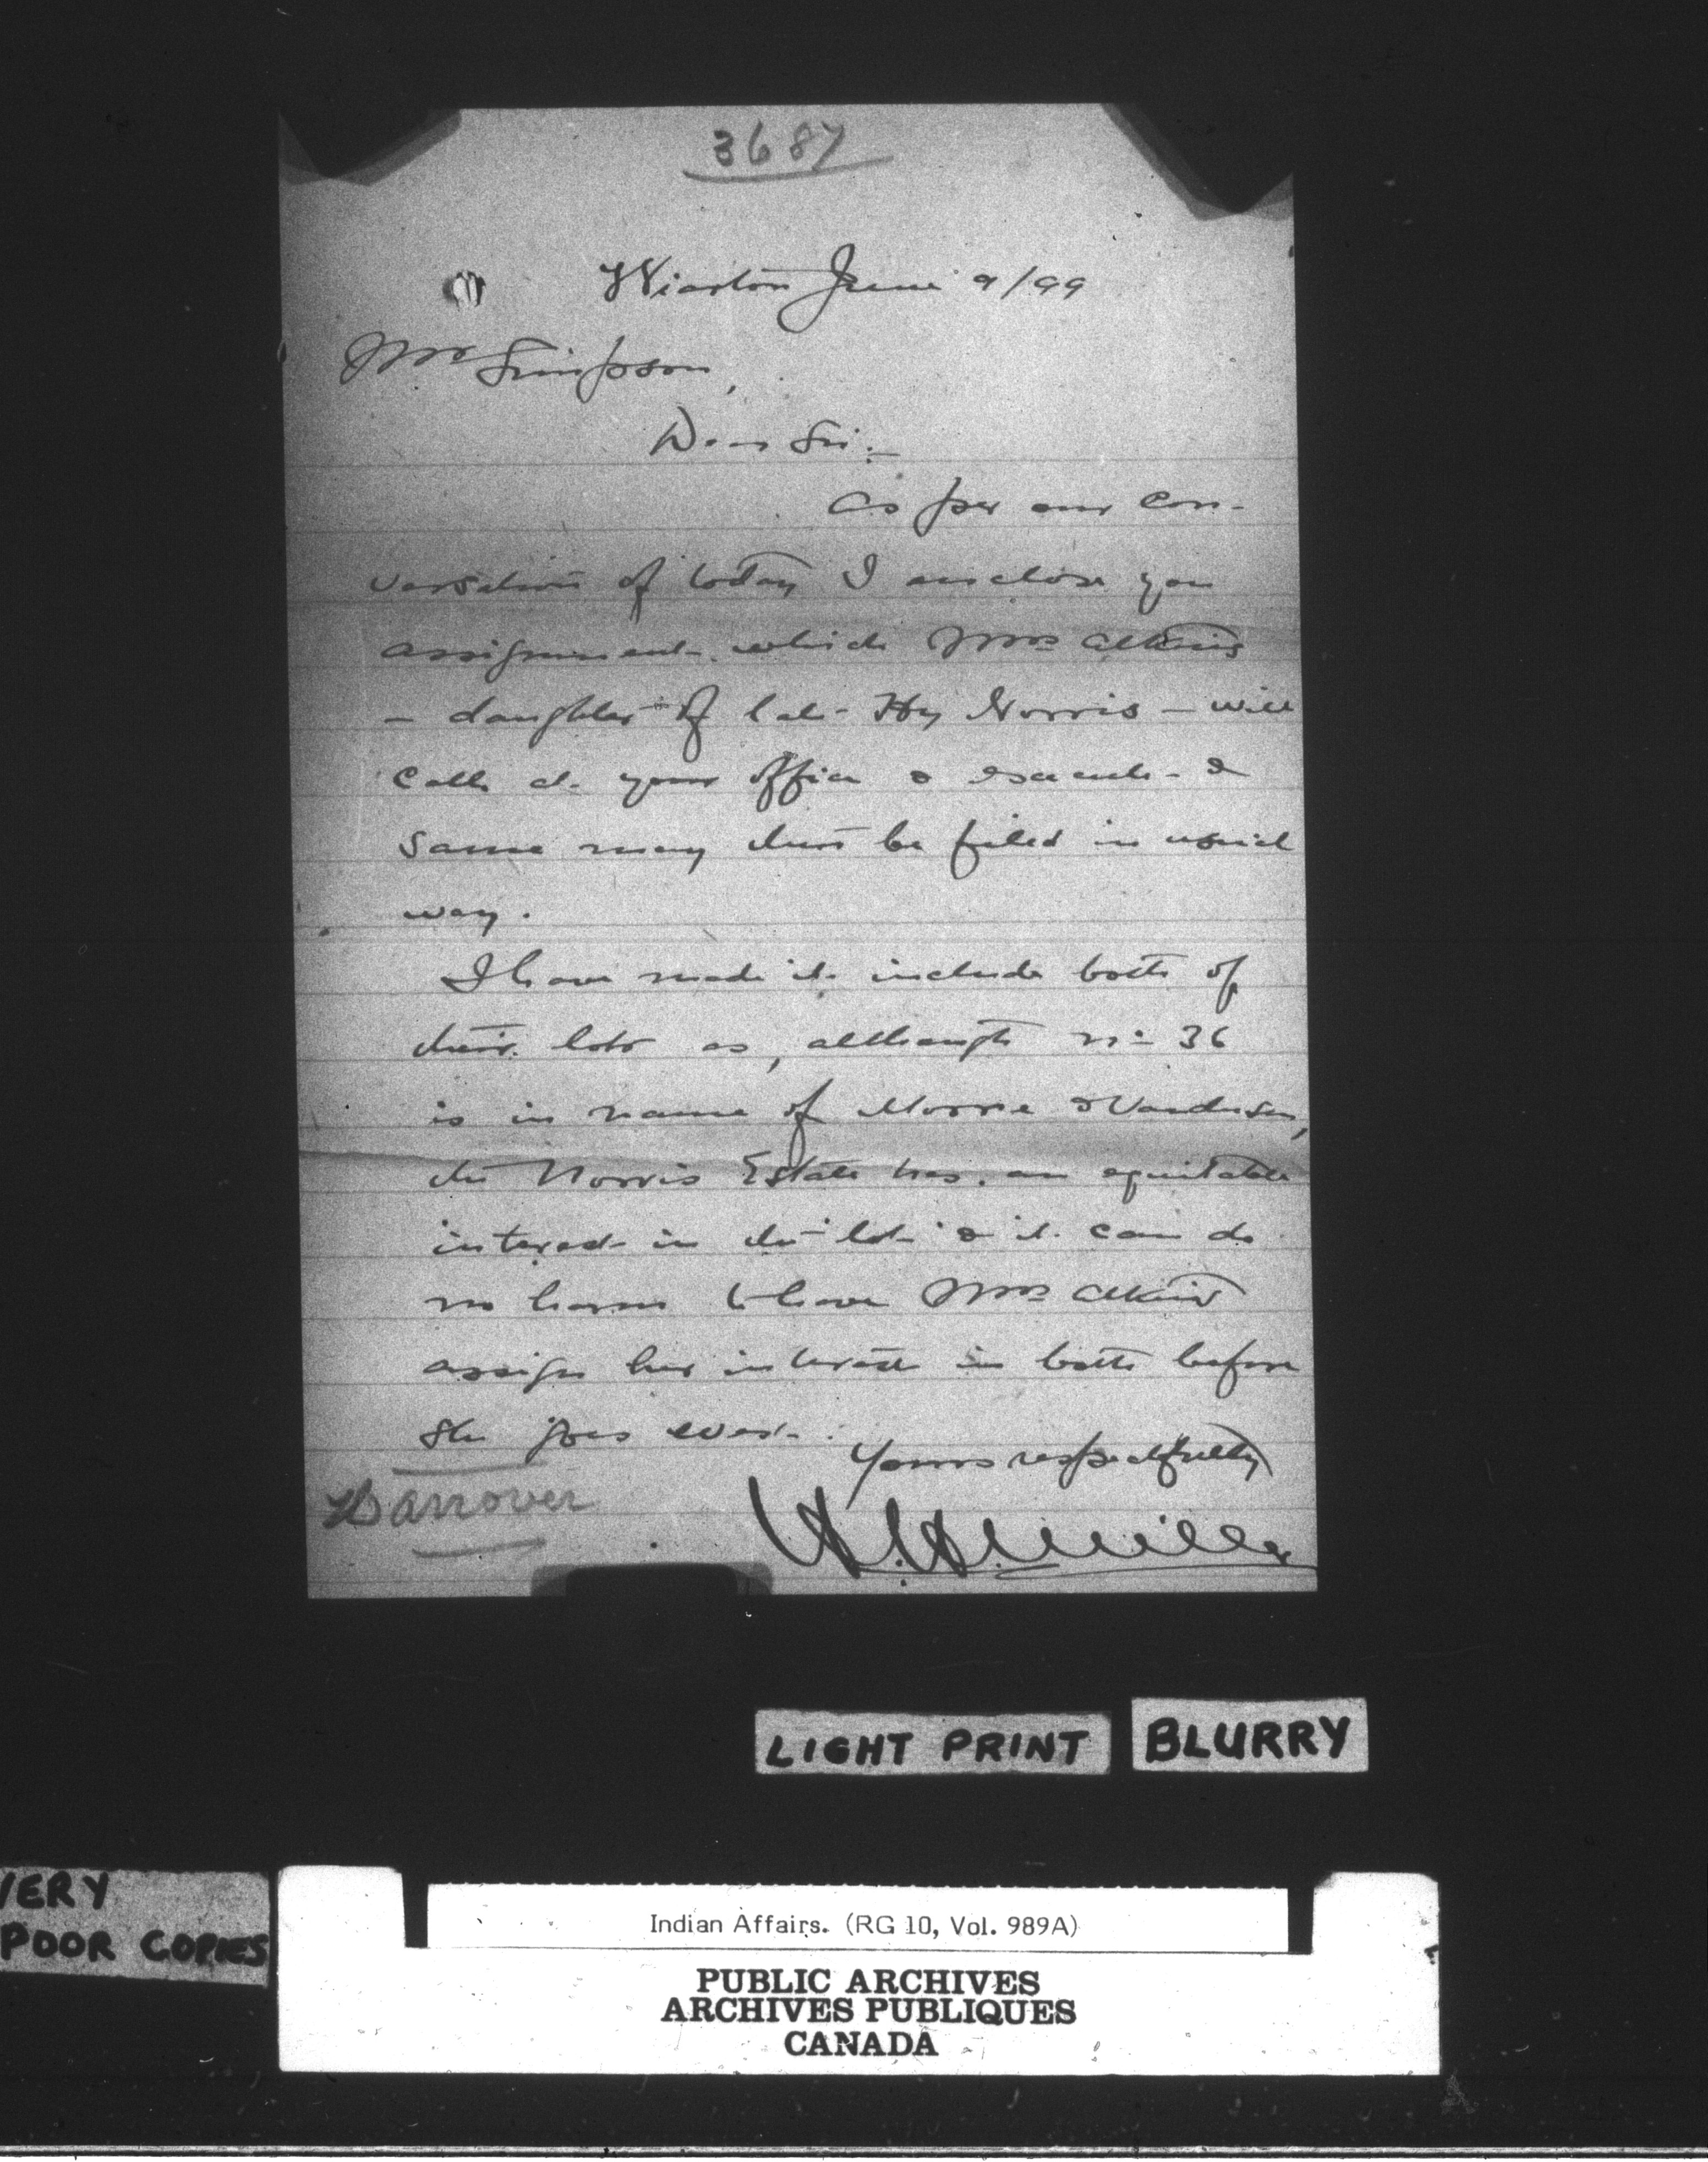 3687
Wiarton June 9/99
Mr Simpson,
Dear Sir:-
As per our con-
versation of today I enclose you
assignment which Mrs Atkins
- daughter of late Hy Norris - will
call at your office & execute &
same may then be filed in usual
way.
I have made it include both of
their lots as, although no 36
is in name of Morris & Vandusen,
the Norris Estate has an equitable
interest in the lot & it can do
no harm to have Mrs Atkins
assign her interest in both before
she goes west.
Yours respectfully
Hanover
Miller
LIGHT PRINT BLURRY
VERY
POOR COPIES
Indian Affairs. (RG 10, Vol. 989A)
PUBLIC ARCHIVES
ARCHIVES PUBLIQUES
CANADA